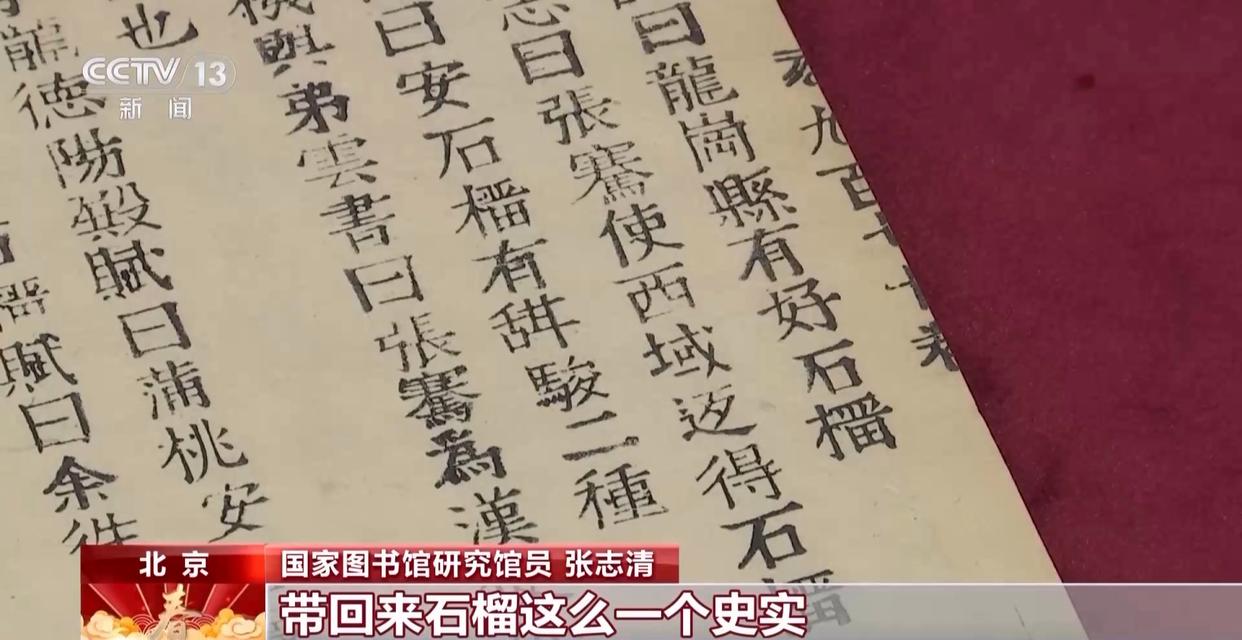 CCTV 13
新闻
九百七十卷
曰龍崗縣有好石榴
志曰張騫使西域返得石榴
曰安石榴有甛駿二種
機與弟雲書曰張騫為漢
也
龍德陽殿賦曰蒲桃安
榴賦曰余
北京
国家图书馆研究馆员 张志清
春
带回来石榴这么一个史实